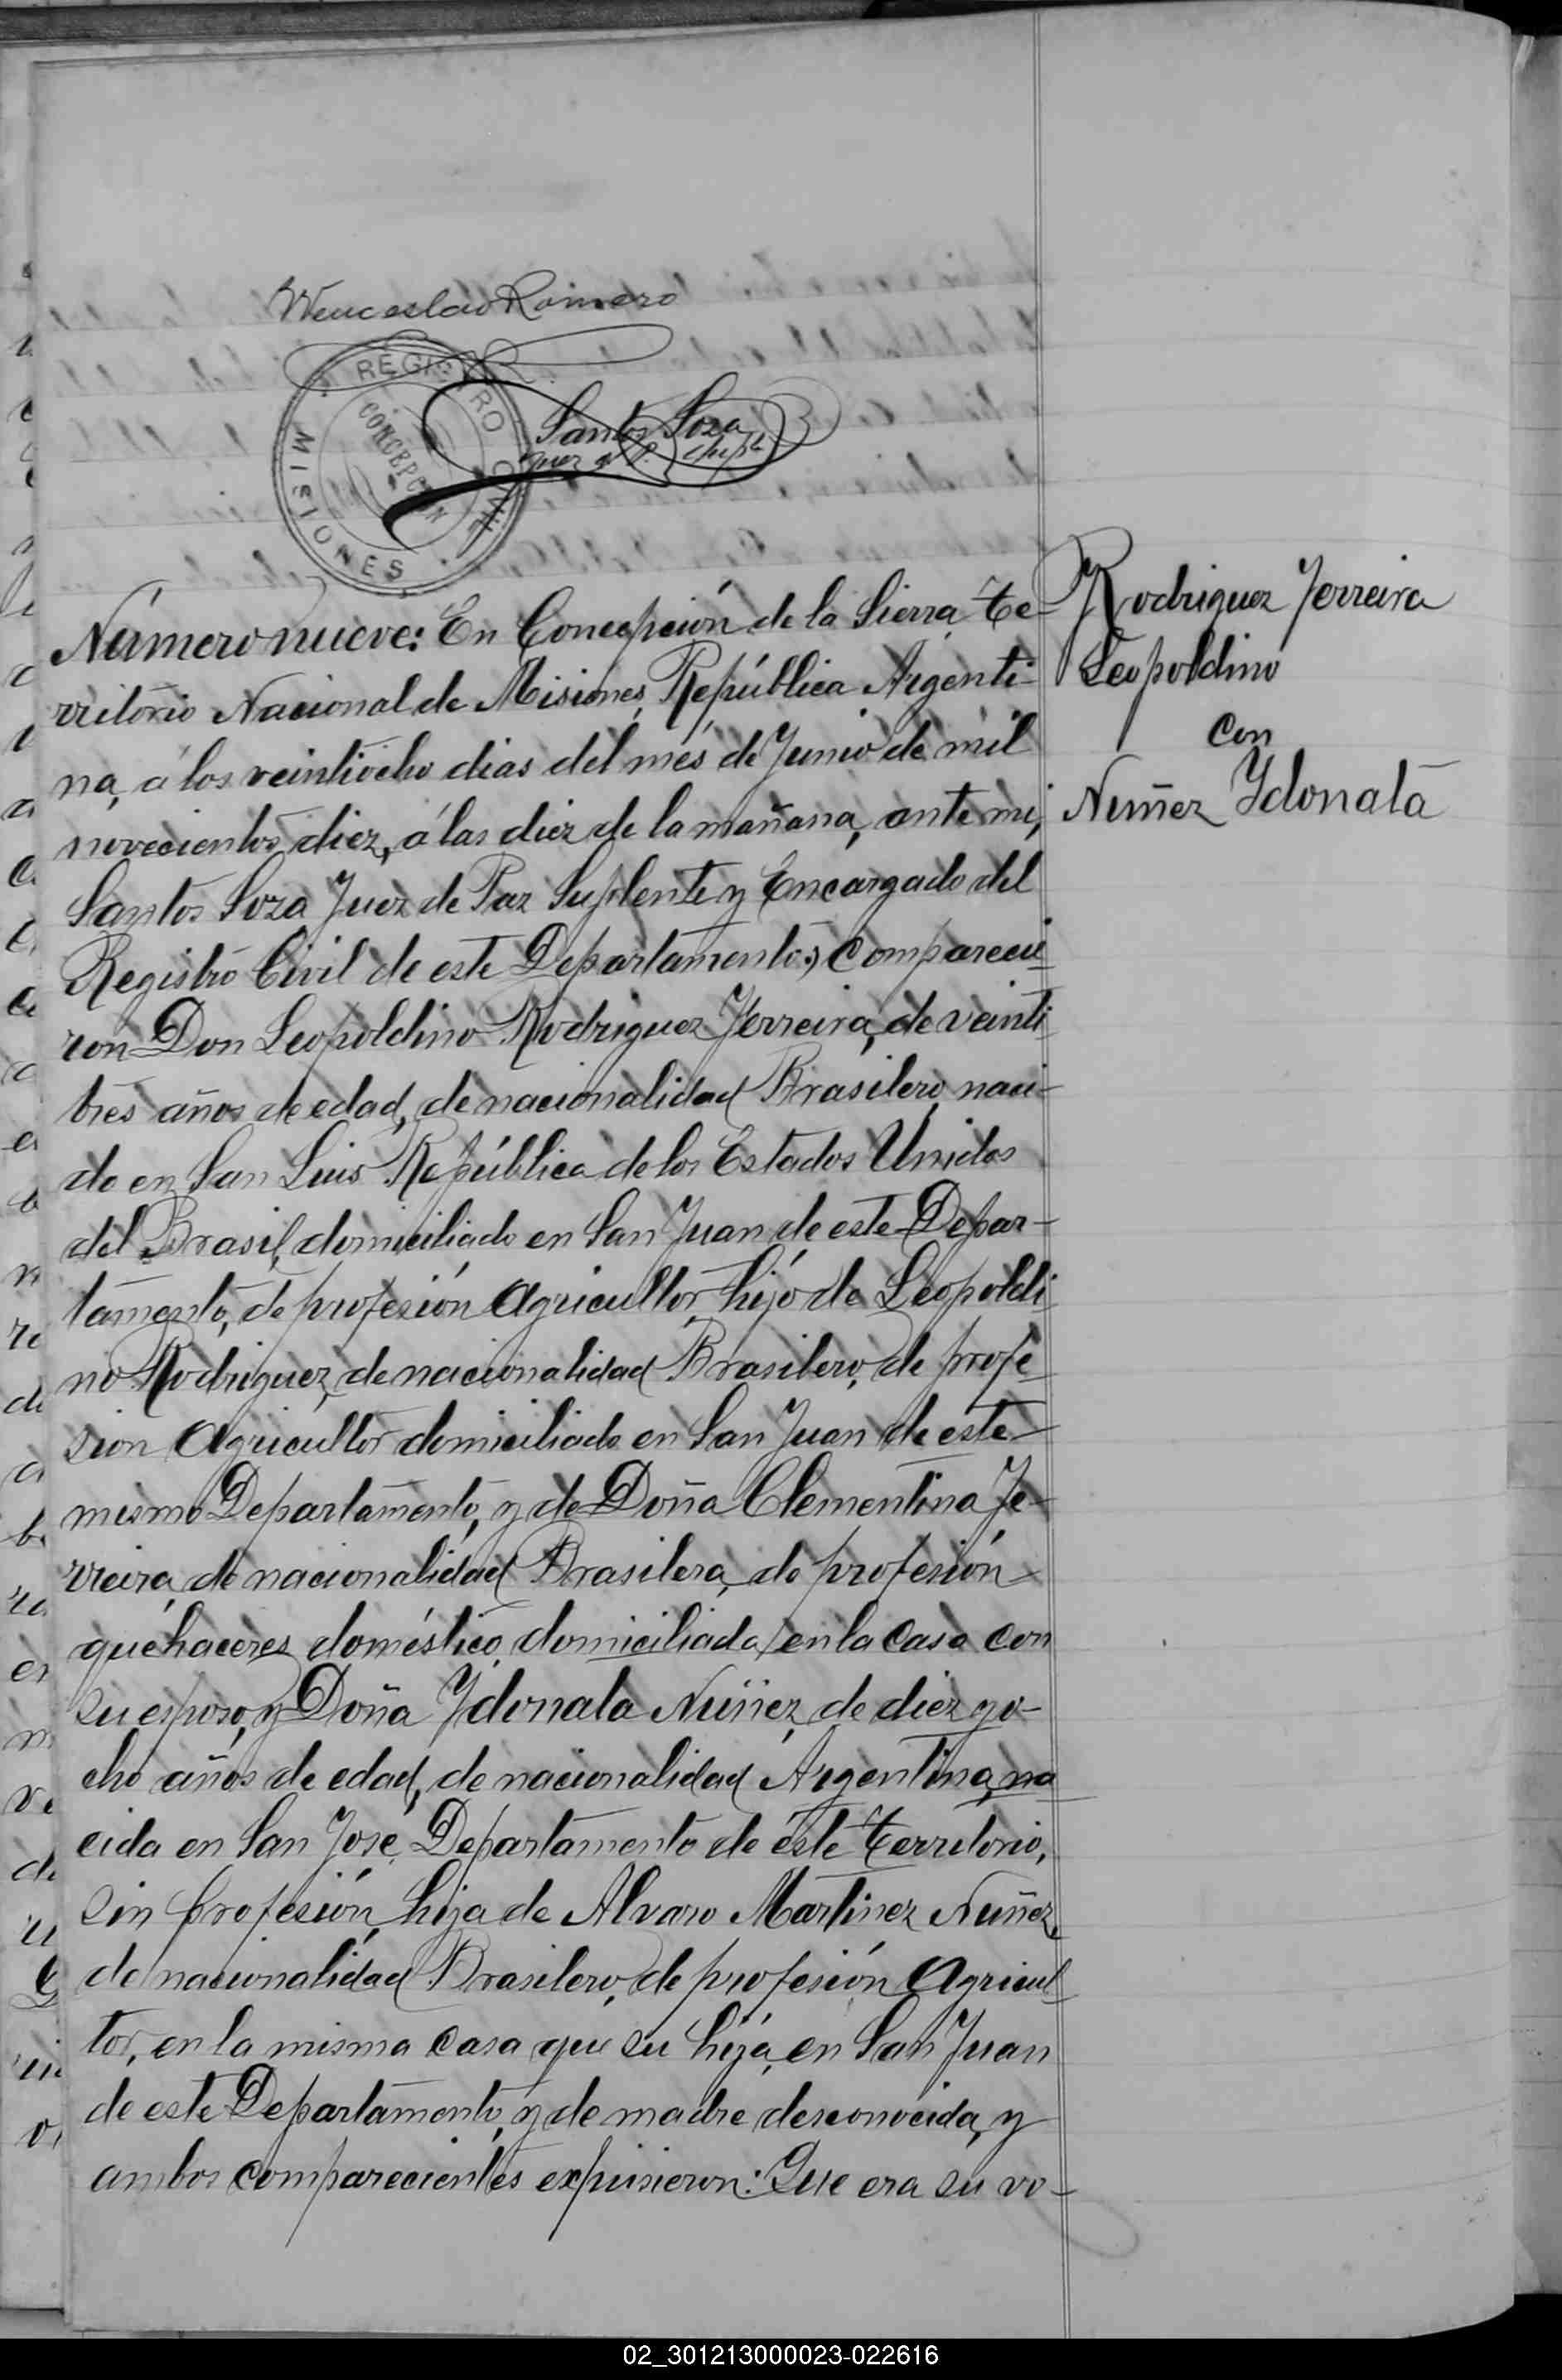 Wenceslao Romero
REGISTRO CIVIL
CONCEPCIÓN
MISIONES
Santos Soza
Juez de P. Supte
Número nueve: En Concepción de la Sierra Te-
rritorio Nacional de Misiones, República Argenti-
na, á los veintiocho dias del més de Junio de mil
novecientos diez, á las diez de la mañana, ante mi,
Santos Soza Juez de Paz Suplente y Encargado del
Registro Civil de este Departamento; comparecie-
ron Don Leopoldino Rodriguez Ferreira, de veinti-
tres años de edad, de nacionalidad Brasilero, naci-
do en San Luis República de los Estados Unidos
del Brasil, domiciliado en San Juan de este Depar-
tamento, de profesión Agricultor, hijo de Leopoldi
no Rodriguez, de nacionalidad Brasilero, de profe-
sion Agricultor domiciliado en San Juan de este
mismo Departamento, y de Doña Clementina Fe-
rreira, de nacionalidad Brasilera, de profesión
quéhaceres doméstico, domiciliada en la Casa con
su esposo, y Doña Ydonata Nuñez, de diez y o-
cho años de edad, de nacionalidad Argentina, na
cida en San José, Departamento de éste Territorio,
sin profesión, hija de Alvaro Martinez Nuñez,
de nacionalidad Brasilero, de profesión Agricul-
tor, en la misma Casa que su hija, en San Juan
de este Departamento, y de madre desconocida, y
ambos comparecientes expusieron: Que era su vo-
Rodriguez Ferreira
Leopoldino
con
Nuñez Ydonata
02_301213000023-022616